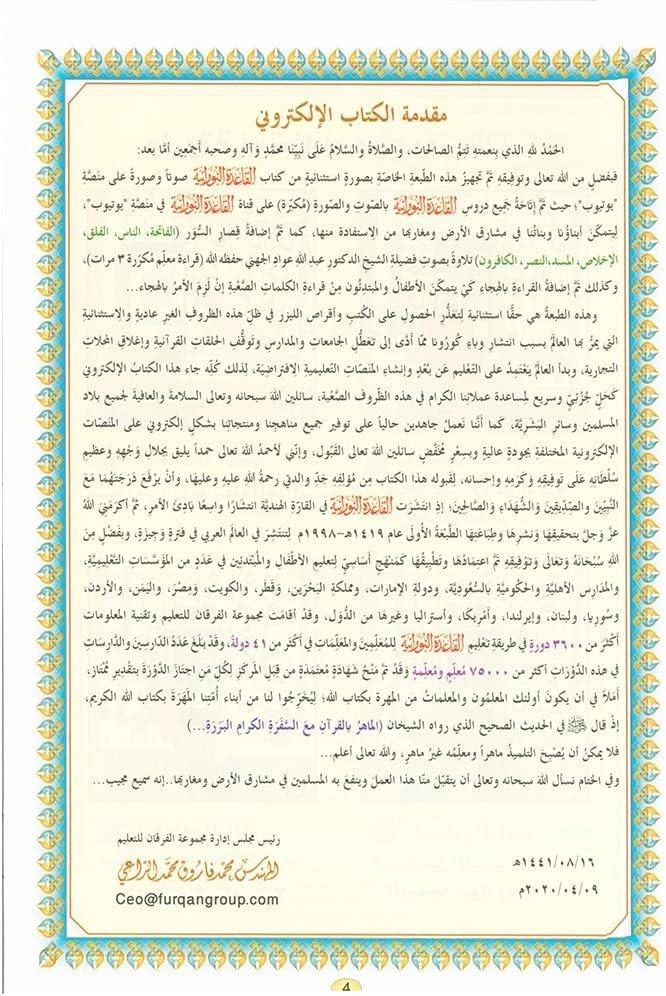 مقدمة الكتاب الإلكتروني
الحَمْدُ للهِ الذي بِنعمتهِ تَتِمُّ الصالحات، والصَّلاةُ والسَّلامُ عَلَى نَبِيِّنا محمَّدٍ وَآلهِ وصحبه أجمَعِين أمَّا بعد:
فبفضلٍ من الله تعالى وتوفيقِهِ تمَّ تجهيزُ هذه الطَّبعةِ الخاصّةِ بصورةٍ استثنائيةٍ من كتاب القَاعِدَة النُّورَانِيَّة صوتاً وصورةً على مَنصَّةِ
"يوتيوب"؛ حيث تمَّ إتَاحةُ جَميعِ دروسِ القَاعِدَة النُّورَانِيَّة بالصَّوتِ والصُّورةِ (مُكبّرة) على قناة القَاعِدَة النُّورَانِيَّة في منصّةِ "يوتيوب"،
لِيتمكَّنَ أبناؤُنا وبناتُنا في مشارق الأرض ومغاربها من الاستفادة منها، كما تمَّ إضافةُ قِصارِ السُّوَر (الفاتحة، الناس، الفلق،
الإخلاص، المسد،النصر، الكافرون) تلاوةً بصوتِ فضيلةِ الشيخ الدكتور عبدِ اللهِ عوادِ الجهنيِ حفظه الله (قراءة معلّم مُكرّرة ٣ مرات)،
وكذلك تمَّ إضافةُ القراءةِ بالهجاءِ كَيْ يتمكّنَ الأطفالُ والمبتدئون مِنْ قراءةِ الكلماتِ الصَّعْبةِ إنْ لَزِمَ الأمرُ بالهجاء...
وهذه الطبعةُ هي حقًّا استثنائية لِتَعَذُّرِ الحصولِ على الكُتبِ وأقراصِ الليزر في ظلّ هذه الظروفِ الغيرِ عاديةٍ والاستثنائيةِ
التي يمرُّ بها العالمُ بسبب انتشارِ وباءِ كُورُونا ممّا أدَّى إلى تَعَطُّلِ الجامعاتِ والمدارسِ وتَوقُّفِ الحلقاتِ القرآنيةِ وإغلاقِ المحلاتِ
التجاريةِ، وبدأ العالمُ يَعْتَمِدُ على التّعْليم عَن بُعْدٍ وإنشاءِ المنَصّاتِ التعليميةِ الافتراضيّةِ، لِذلك كُلِّه جاء هذا الكتابُ الإلكتروني
كَحَلٍّ جُزْئِيٍّ وسريعٍ لِمساعدةِ عملائِنا الكرام في هذه الظّروف الصَّعْبة، سائلين اللهَ سبحانه وتعالى السلامةَ والعافيةَ لجميع بلادِ
المسلمين وسائرِ البَشريّة، كما أنَّنا نَعملُ جاهدين حالياً على توفير جميع مناهجِنا ومنتجاتِنا بشكلٍ إلكتروني على المنَصّاتِ
الإلكترونيةِ المختلفةِ بجودةٍ عاليةٍ وبسِعْرٍ مُخفَّضٍ سائلين اللهَ تعالى القَبُول، وإنّني لأحمدُ اللهَ تعالى حمداً يليق بجلالِ وجْهِهِ وعظيمِ
سُلطَانِهِ عَلى تَوفِيقِهِ وكَرَمِهِ وإحسانِه، لِقَبوله هذا الكتابَ من مُؤلِفِهِ جَدِّي والدتي رحمةُ اللهِ عليه وعليها، وأنْ يرْفَعَ دَرَجَتَهُمَا مَعَ
النَّبِيِّينَ والصِّدِّيقِينَ والشُّهَدَاءِ والصَّالِحِينَ؛ إذِ انتَشَرَتِ القَاعِدَة النُّورَانِيَّة في القارّةِ الهنديَّةِ انتشارًا واسعًا بادئَ الأمرِ، ثمَّ أكرَمَنِيَ اللهُ
عزَّ وَجلَّ بتحقيقِهَا وَنشرِهَا وطِبَاعَتِهَا الطَّبْعَةَ الأُولَى عام ١٤١٩هـ-١٩٩٨م لِتنتَشِرَ في العالم العربي في فترةٍ وَجِيزَةٍ، وبفضْلٍ مِنَ
اللهِ سُبْحَانَهُ وَتَعَالَى وَتَوفِيقِهِ تمَّ اعتِمَادُهَا وَتَطبِيقُهَا كَمَنْهَجٍ أَسَاسِيٍّ لِتعليمِ الأَطفَالِ والمُبتَدئينَ في عَدَدٍ من المؤسَّسَاتِ التَّعْلِيمِيَّةِ،
والمَدَارِسِ الأهلِيَّةِ والحُكُومِيَّةِ بالسُّعُودِيَّةِ، ودولةِ الإمارات، ومملكةِ البَحْرَين، وَقَطَر، والكويت، وَمِصْرَ، واليَمَنِ، والأردن،
وسُوريا، ولبنان، وإيرلندا، وأمْرِيكَا، وأستراليا وغيرها من الدُّوَل، وقدْ أقامَت مجموعةُ الفرقان للتعليم وتقنية المعلومات
أكْثَر من ٣٦٠٠ دورةٍ في طريقة تعْليم القَاعِدَة النُّورَانِيَّة للمُعَلِّمين والمعلِّمَات في أكثَر من ٤١ دولةً، وقد بَلَغَ عَدَدُ الدّارسِينَ والدَّارِسَاتِ
في هذه الدَّوْرَاتِ أكثر من ٧٥٠٠٠ مُعلِّمٍ ومُعلِّمةٍ وَقَدْ تمَّ مَنْحُ شهَادةٍ مُعتمَدةٍ من قِبَلِ المركَزِ لِكلِّ مَنِ اجتَازَ الدَّوْرَةَ بتَقْدِيرِ مُمْتَاز،
أمَلًا في أن يكونَ أولئك المعلمون والمعلمات من المهرة بكتاب الله؛ لِيُخرِّجوا لنا من أبناء أُمَّتِنا المهَرَةَ بكتابِ اللهِ الكريم،
إذْ قال ﷺ في الحديث الصحيح الذي رواه الشيخان (الماهرُ بالقرآنِ معَ السَّفَرَةِ الكرامِ البَرَرَةِ...)
فلا يمكنُ أن يُصْبِحَ التلميذُ ماهراً ومعلِّمُه غيرُ ماهرٍ، والله تعالى أعلم...
وفي الختام نسأل اللهَ سبحانه وتعالى أن يتقبّلَ منّا هذا العملَ وينفعَ به المسلمين في مشارق الأرض ومغاربها..إنه سميع مجيب...
رئيس مجلس إدارة مجموعة الفرقان للتعليم
١٤٤١/٠٨/١٦هـ
المهندس محمد فاروق محمد الراعي
٢٠٢٠/٠٤/٠٩م
Ceo@furqangroup.com
4